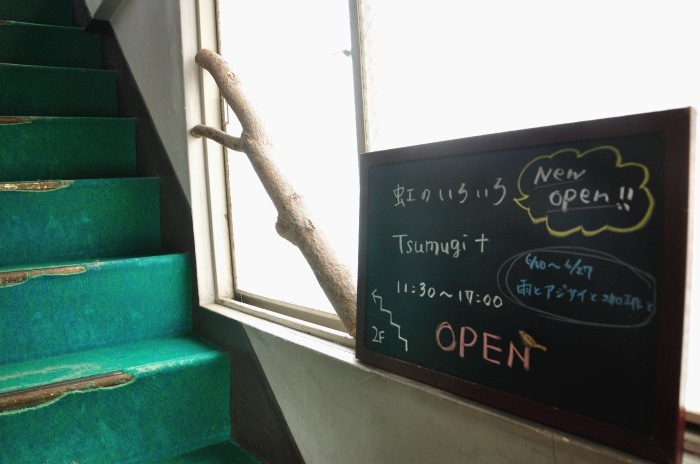 虹のいろいろ
New
open!!
Tsumugi+
6/10～6/27
雨とアジサイと珈琲と
11:30～17:00
2F
OPEN